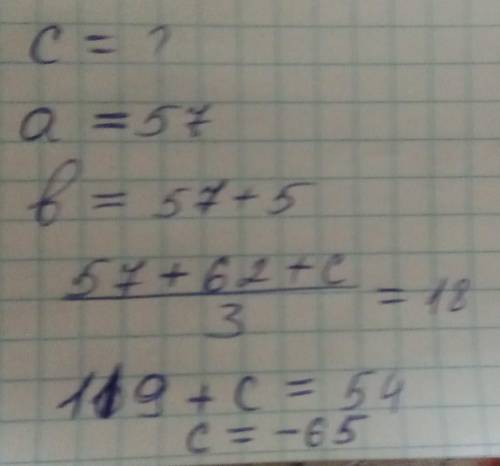 c = ?
a = 57
b = 57 + 5
57 + 62 + c / 3 = 18
119 + c = 54
c = -65